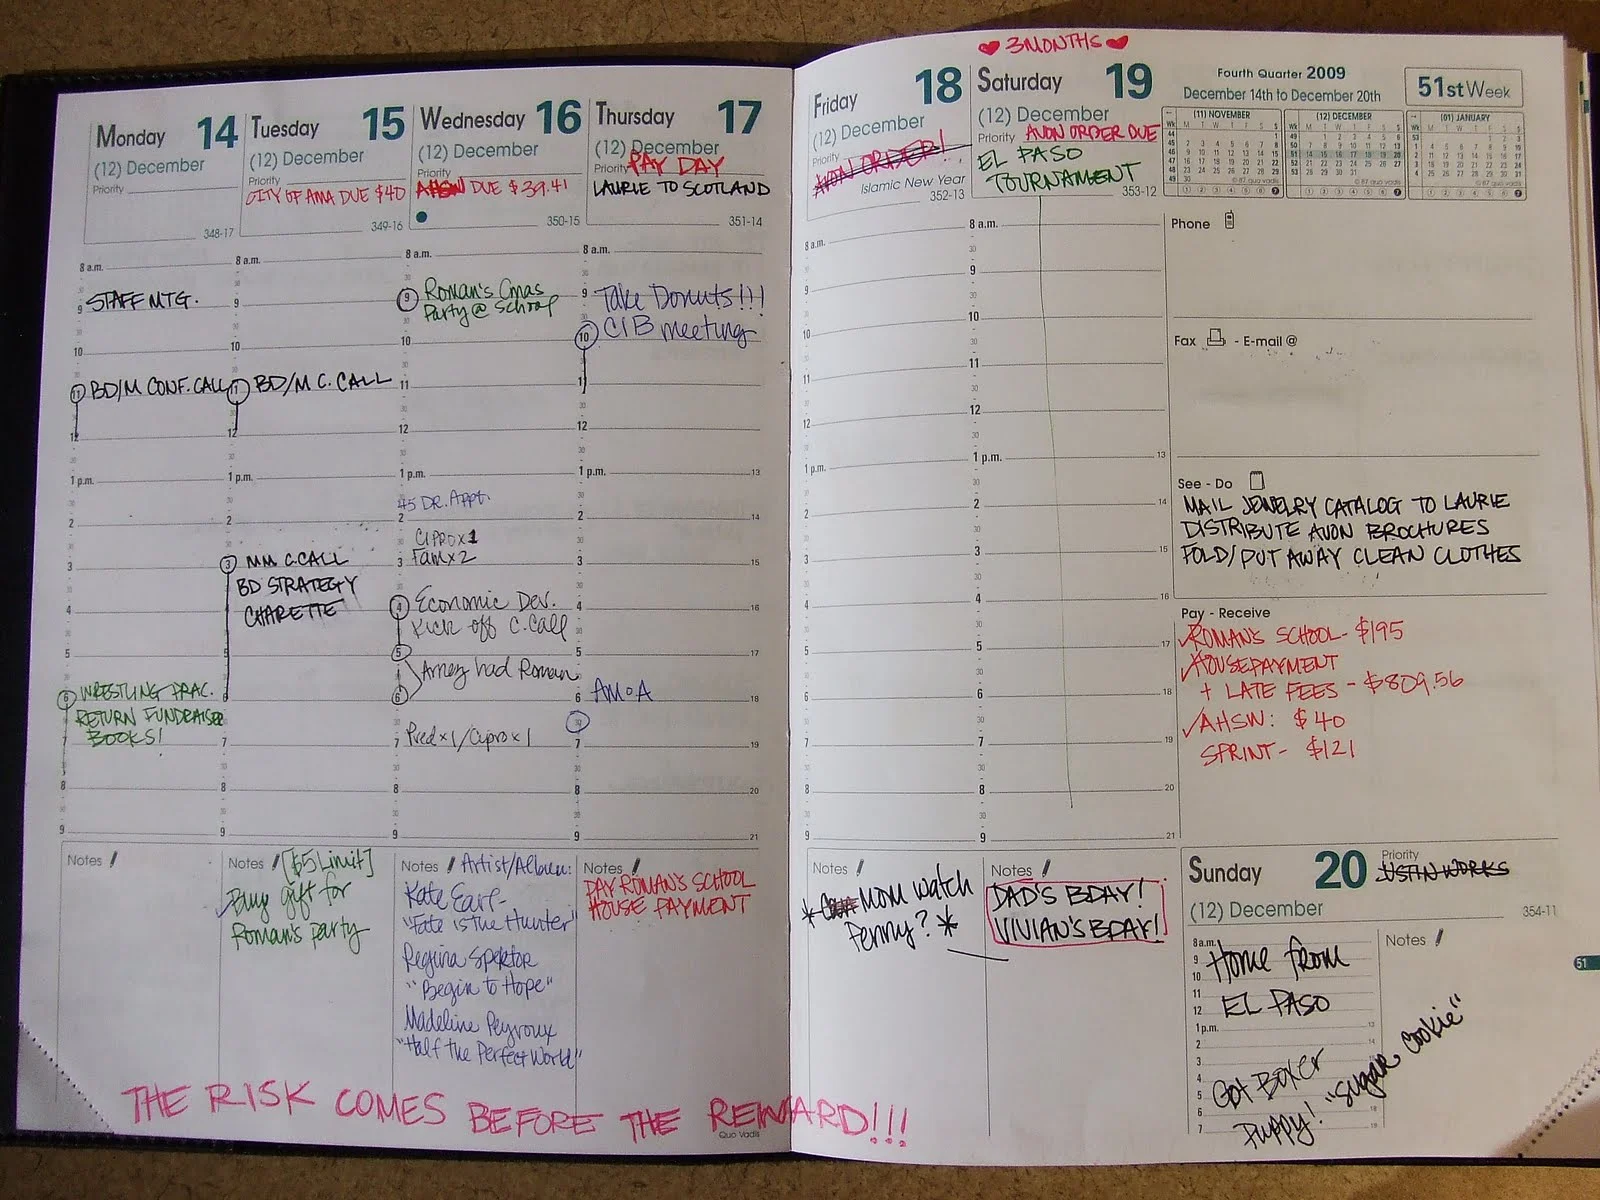 Monday 14
(12) December
Priority
348-17
8 a.m.
9 STAFF MTG.
10
11 BD/M CONF. CALL
12
1 p.m.
2
3
4
5
6 WRESTLING PRAC.
RETURN FUNDRAISER
BOOKS!
7
8
9
Notes
Tuesday 15
(12) December
Priority
CITY OF AMA DUE $40
349-16
8 a.m.
9
10
11 BD/M C. CALL
12
1 p.m.
2
3 MM C.CALL
BD STRATEGY
CHARETTE
4
5
6
7
8
9
Notes [$5 Limit]
Buy gift for
Roman's party
Wednesday 16
(12) December
Priority
AHSW DUE $39.41
350-15
8 a.m.
9 Roman's Cmas
Party @ School
10
11
12
1 p.m.
45 DR. Appt.
2
CIPRO x 1
Fam x 2
3
4 Economic Dev.
Kick off C. Call
5
Amey had Roman
6
7 Pred x 1/Cipro x 1
8
9
Notes Artist/Album:
Kate Earl-
"Fate is the Hunter"
Regina Spektor
"Begin to Hope"
Madeline Peyroux
"Half the Perfect World"
Thursday 17
(12) December
Priority PAY DAY
LAURIE TO SCOTLAND
351-14
8 a.m.
9 Take Donuts!!!
10 CIB meeting
11
12
1 p.m. 13
2 14
3 15
4 16
5 17
6 AMoA 18
30
7 19
8 20
9 21
Notes
PAY ROMAN'S SCHOOL
HOUSE PAYMENT
THE RISK COMES BEFORE THE REWARD!!!
Quo Vadis
Friday 18
(12) December
Priority
AVON ORDER!
Islamic New Year
352-13
8 a.m.
9
10
11
12
1 p.m.
2
3
4
5
6
7
8
9
Notes
* Mom watch
Penny? *
♥ 3 MONTHS ♥
Saturday 19
(12) December
Priority AVON ORDER DUE
EL PASO
TOURNAMENT
353-12
8 a.m.
9
10
11
12
1 p.m. 13
2 14
3 15
4 16
5 17
6 18
7 19
8 20
9 21
Notes
DAD'S BDAY!
VIVIAN'S BDAY!
Fourth Quarter 2009
December 14th to December 20th
51st Week
(11) NOVEMBER
(12) DECEMBER
(01) JANUARY
Phone
Fax - E-mail @
See - Do
MAIL JEWELRY CATALOG TO LAURIE
DISTRIBUTE AVON BROCHURES
FOLD/PUT AWAY CLEAN CLOTHES
Pay - Receive
ROMAN'S SCHOOL - $195
HOUSEPAYMENT
+ LATE FEES - $809.56
AHSW: $40
SPRINT - $121
Sunday 20
Priority
JUSTIN WORKS
(12) December
354-11
8 a.m.
9 Home from
10
11 EL PASO
12
1 p.m. 13
2 14
3
4 Got Boxer
5
6 Puppy! "Sugar Cookie" 18
7 19
Notes
51